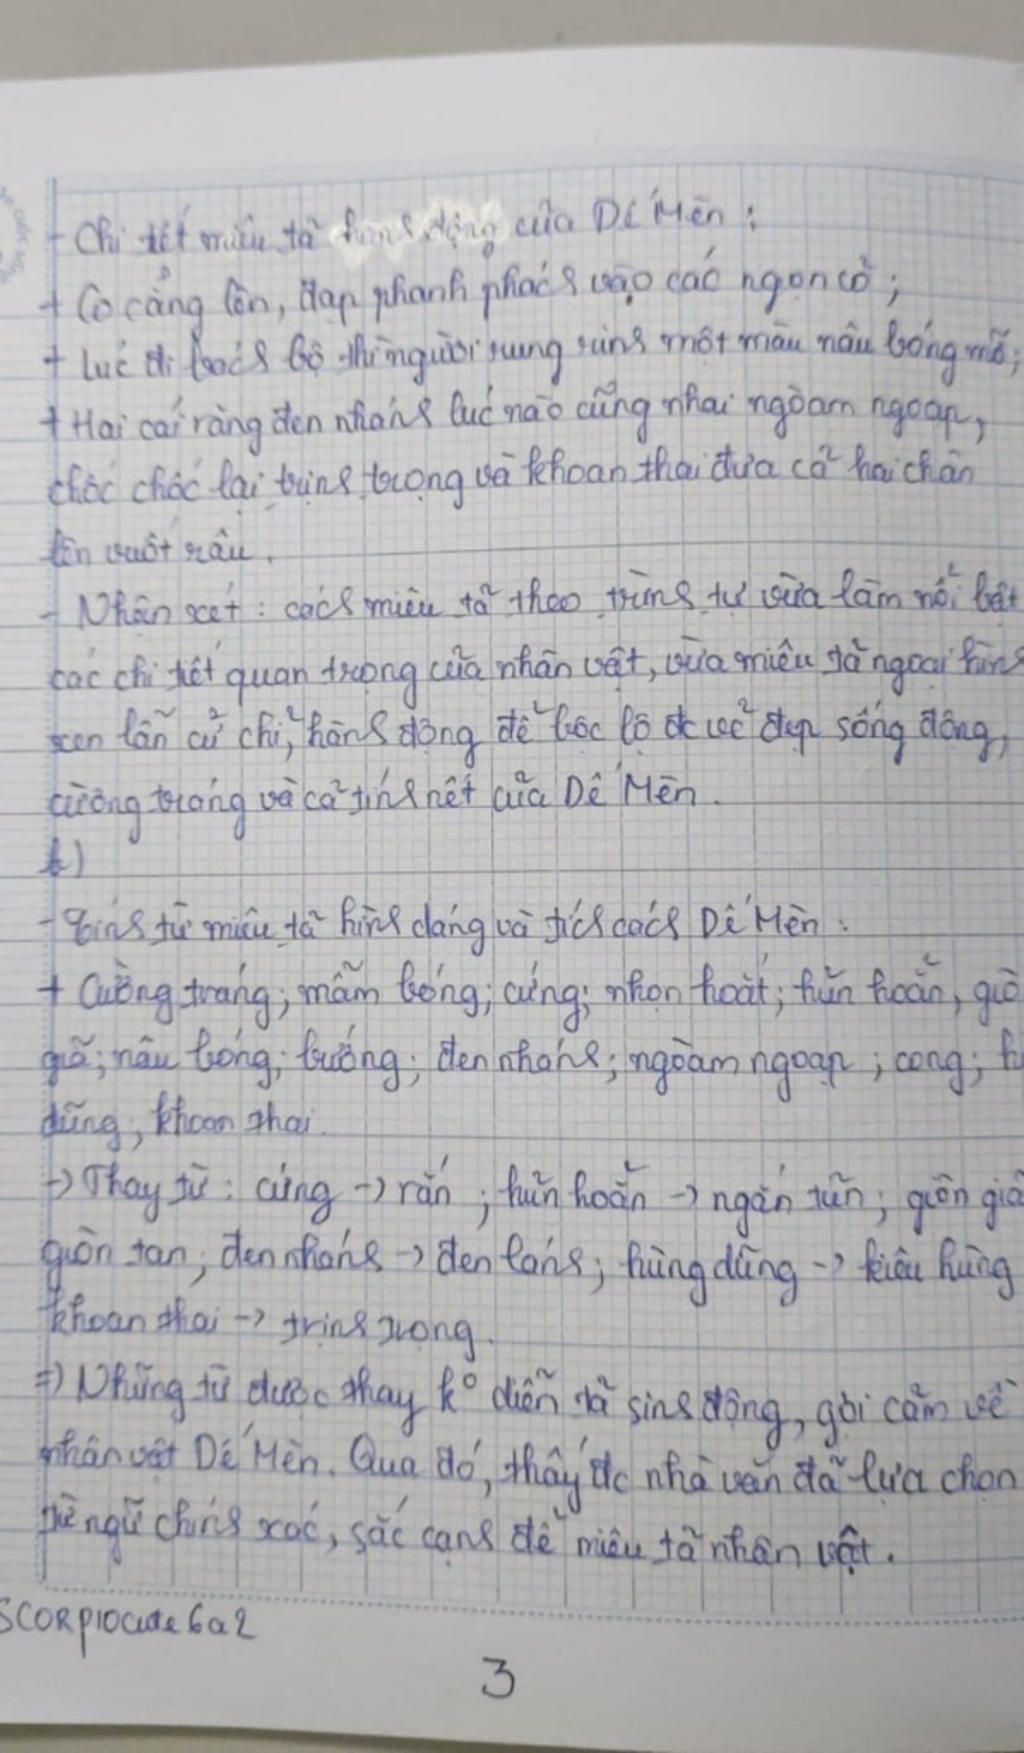 - Chi tiết miêu tả hành động của Dế Mèn:
+ Co cẳng lên, đạp phanh phách vào các ngọn cỏ;
+ Lúc đi bách bộ thì người rung rinh một màu nâu bóng mỡ;
+ Hai cái răng đen nhánh lúc nào cũng nhai ngoàm ngoạp,
chốc chốc lại trịnh trọng và khoan thai đưa cả hai chân
lên vuốt râu.
- Nhận xét: cách miêu tả theo trình tự vừa làm nổi bật
các chi tiết quan trọng của nhân vật, vừa miêu tả ngoại hình
xen lẫn cử chỉ, hành động để bộc lộ đc vẻ đẹp sống động,
cường tráng và cả tính nết của Dế Mèn.
b)
- Tính từ miêu tả hình dáng và tích cách Dế Mèn:
+ Cường tráng; mẫm bóng; cứng; nhọn hoắt; hủn hoẳn, giò
giã; nâu bóng; bướng; đen nhánh; ngoàm ngoạp; cong; h
dũng; khoan thai.
-> Thay từ: cứng -> rắn; hủn hoẳn -> ngắn tũn; giòn giã
giòn tan; đen nhánh -> đen lánh; hùng dũng -> kiêu hùng
khoan thai -> trịnh trọng.
=> Những từ được thay k° diễn tả sinh động, gợi cảm về
nhân vật Dế Mèn. Qua đó, thấy đc nhà văn đã lựa chọn
từ ngữ chính xác, sắc cạnh để miêu tả nhân vật.
SCORPIOcute6a2
3